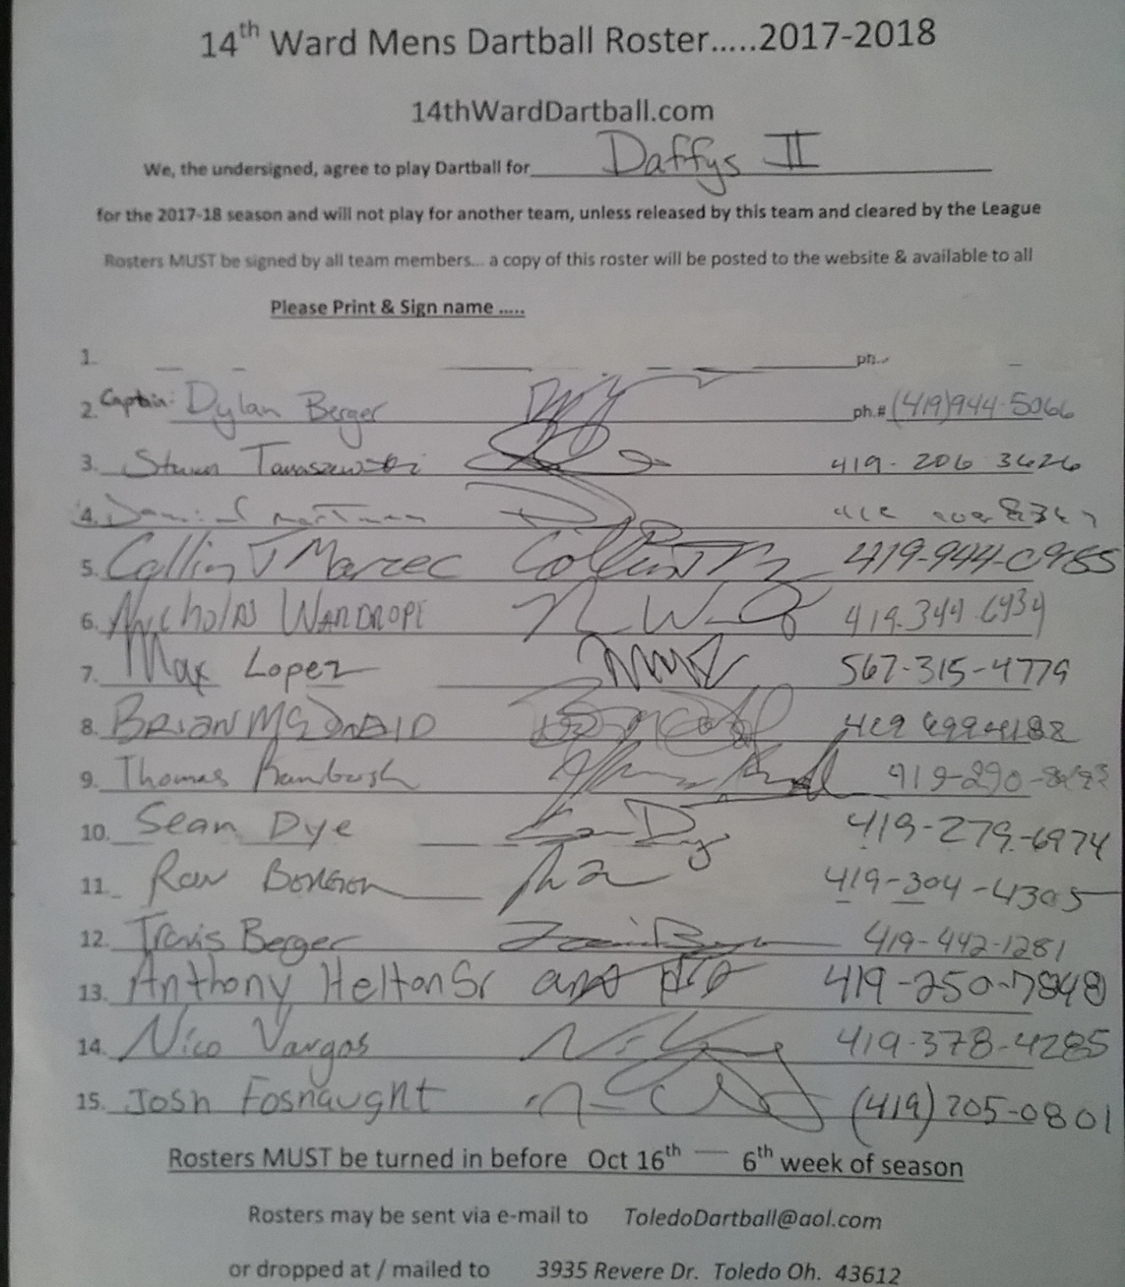 14th Ward Mens Dartball Roster.....2017-2018
14thWardDartball.com
We, the undersigned, agree to play Dartball for Daffys II
for the 2017-18 season and will not play for another team, unless released by this team and cleared by the League
Rosters MUST be signed by all team members... a copy of this roster will be posted to the website & available to all
Please Print & Sign name .....
1. ph..
2. Captain: Dylan Berger ph.# (419)944-5066
3. 419-206 3626
4.
5. Collin J Marzec 419-944-0985
6. Nicholas Wardrope 419.344.6934
7. Max Lopez 567-315-4779
8. Brian McDonald
9. Thomas 419-290-
10. Sean Dye Sean Dye 419-279-6974
11. 419-304-4305
12. Travis Berger Travis Berger 419-442-1281
13. Anthony Helton Sr 419-250-7848
14. Nico Vargas 419-378-4285
15. Josh Fosnaught (419) 205-0801
Rosters MUST be turned in before Oct 16th — 6th week of season
Rosters may be sent via e-mail to ToledoDartball@aol.com
or dropped at / mailed to 3935 Revere Dr. Toledo Oh. 43612